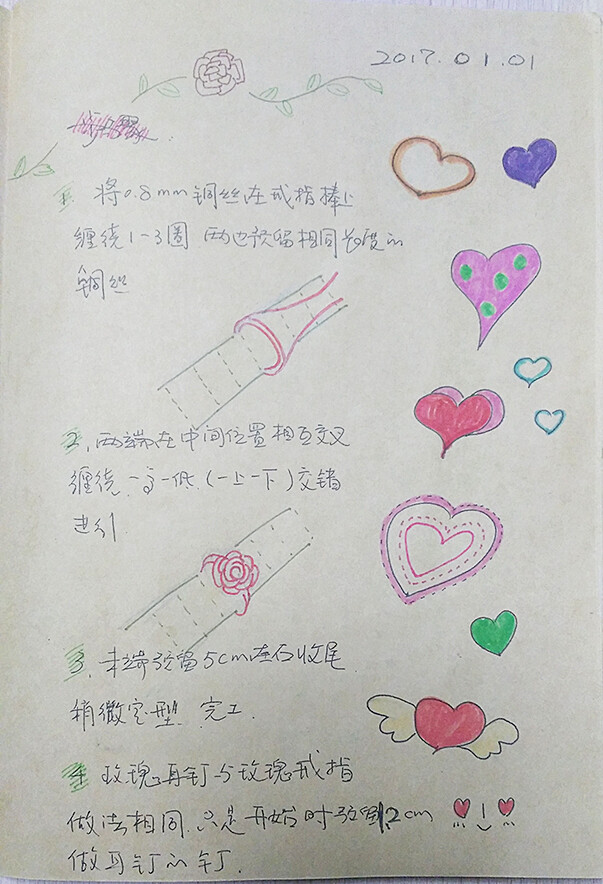 2017.01.01
1. 将0.8mm铜丝在戒指捧上
缠绕1-3圈 两边预留相同长度的
铜丝
2. 两端在中间位置相互交叉
缠绕.一高一低.(一上一下)交错
进行
3. 末端预留5cm左右收尾
稍微定型 完工.
4 玫瑰耳钉与玫瑰戒指
做法相同.只是开始时预留12cm
做耳钉的钉.